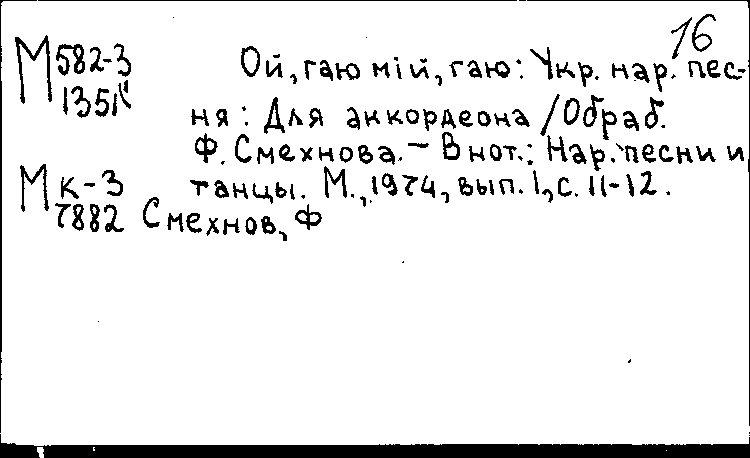 16
М 582-3 Ой, гаю мій, гаю: Укр. нар. пес-
1351 ня: Для аккордеона / Обраб.
Ф. Смехнова. – В нот.: Нар. песни и
М к-3 танцы. М., 1974, вып. 1, с. 11-12.
7882 Смехнов, Ф